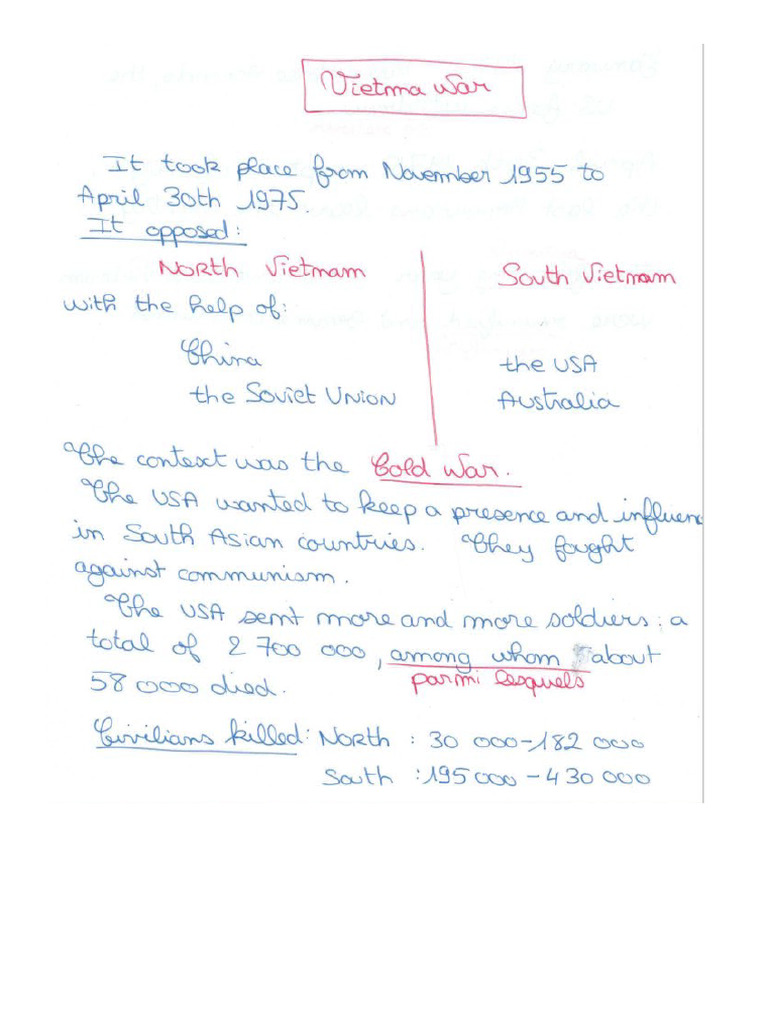 Vietma War
It took place from November 1955 to
April 30th 1975
It opposed:
North Vietnam
South Vietnam
with the help of:
China
the USA
the Soviet Union
Australia
The context was the Cold War.
The USA wanted to keep a presence and influenc
in South Asian countries. They fought
against communism.
The USA sent more and more soldiers: a
total of 2 700 000, among whom about
parmi lesquels
58 000 died.
Civilians killed: North : 30 000-182 000
South : 195 000 - 430 000